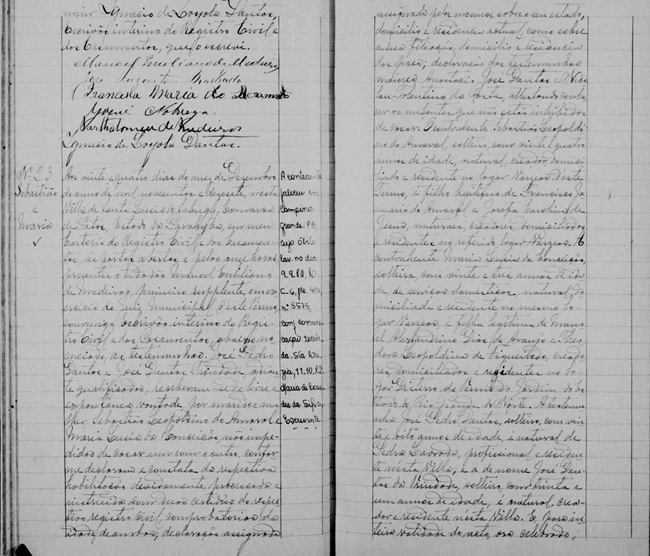 Ignacio de Loyola Dantas,
Escrivão interino do Registro Civil e
dos Casamentos, que o escrevi.
Manoel Emiliano de Medeiros
José Augusto
Francisca Maria do
Nobrega
Bartholomeu de Medeiros
Ignacio de Loyola Dantas.
Nº 23
Sebastião
e
Maria
Aos vinte e quatro dias do mez de Dezembro
do anno de mil novecentos e dezesete, nesta
Villa de Santa Luzia do Sabugy, comarca
de Patos, Estado da Parahyba, em meu
Cartorio de Registro Civil e dos Casamen-
tos, as portas abertas e pelas onze horas
presente o cidadão Manoel Emiliano
de Medeiros, primeiro supplente em ex-
ercicio de Juiz Municipal deste Termo,
commigo escrivão interino do Regis-
tro Civil e dos Casamentos, abaixo no-
meado, as testemunhas José Pedro
Santos e José Santos Trindade, adian-
te qualificados, receberam-se de livre e
espontanea vontade por marido e mu-
lher Sebastião Leopoldino de Amaral e
Maria Lucia da Conceição, não impe-
didos de casar um com o outro, confor-
me declaram e consta da respectiva
habilitação devidamente processada e
instruida com duas certidões do respec-
tivo registro Civil, comprobatorias da
idade de ambos; declaração assignada
A contraente
faleceu em
Campina
Grande. PB
cujo óbito
lav. no dia
C-6, fls.
nº 5575,
conf. comuni-
cação
11.10.82
Escrevente
assignada pelos mesmos sobre seu estado,
domicilio e residencia actual, como sobre
a sua filiação, domicilio e residencia
dos paes; declaração das testemunhas
maiores Anastacio José Dantas e Nico-
lau Tolentino da Costa, attestando conhe-
cer os nubentes que não estão inhibidos
de casar. O contrahente Sebastião Leopoldi-
no do Amaral, solteiro, com vinte e quatro
annos de idade, natural, creador domicili-
ado e residente no logar Varzeas deste
Termo, é filho legitimo de Francisco Ja-
nuario do Amaral e Josefa Carolina de
Jesus, naturaes, creadores, domiciliados
e residentes no referido logar Varzeas. A
contrahente Maria Lucia da Conceição,
solteira, com vinte e um annos de ida-
de, de serviços domesticos, natural, do-
miciliada e residente no mesmo lo-
gar Varzeas, é filha legitima de Mano-
el Alexandrino Dias de Araujo e Theo-
dora Leopoldina de Figueiredo, creado-
res domiciliados e residentes no lo-
gar do
tado do Rio Grande do Norte. A testemu-
nha José Pedro Santos, solteiro, com vin-
te e oito annos de idade, é natural de
Pedra Lavrada, profissional e residen-
te nesta Villa; e a de nome José San-
tos da Trindade, solteiro, com trinta e
um annos de idade, é natural, crea-
dor e residente nesta Villa. E para in-
teira validade do acto, ora celebrado,